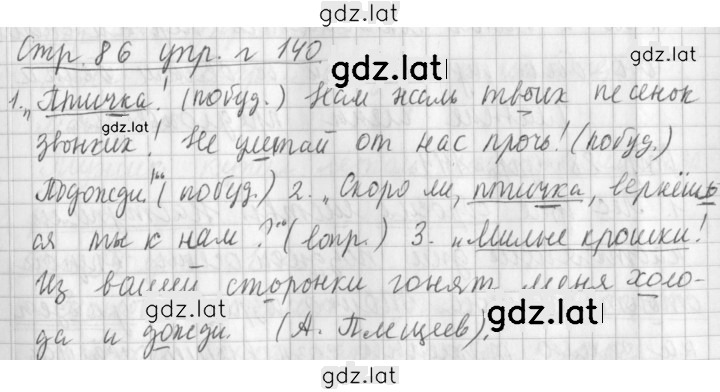 gdz.lat
Стр. 86 упр. г 140
gdz.lat
1. „Птичка! (побуд.) Нам жаль твоих песенок
gdz.lat
звонких! Не улетай от нас прочь! (побуд.)
Подожди!“ (побуд.) 2. „Скоро ли, птичка, вернёшь-
ся ты к нам?“ (вопр.) 3. „Милые крошки!
Из вашей сторонки гонят меня холо-
gdz.lat gdz.lat
да и дожди. (А. Плещеев).
gdz.lat